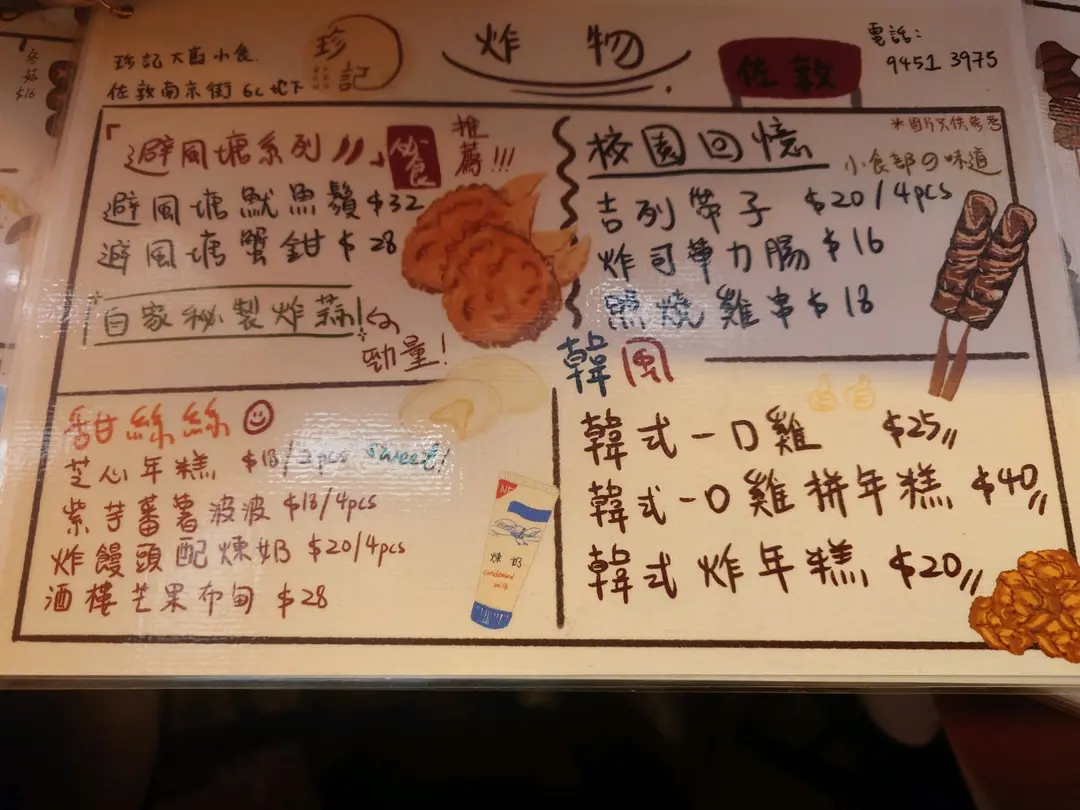 珍記大酉小食
佐敦南京街 6C 地下
珍記
炸物
佐敦
電話:
9451 3975
*圖片只供參考
「避風塘系列」
食
推薦!!!
避風塘魷魚鬚 $32
避風塘蟹鉗 $28
自家秘製炸蒜!
勁量!
校園回憶
小食部の味道
吉列帶子 $20/4pcs
炸司華力腸 $16
照燒雞串 $18
甜絲絲
芝心年糕 $18/2pcs sweet!
紫芋蕃薯波波 $18/4pcs
炸饅頭配煉奶 $20/4pcs
酒樓芒果布甸 $28
煉奶
condensed
milk
韓風
韓式一口雞 $25
韓式一口雞拼年糕 $40
韓式炸年糕 $20
冬菇
$16